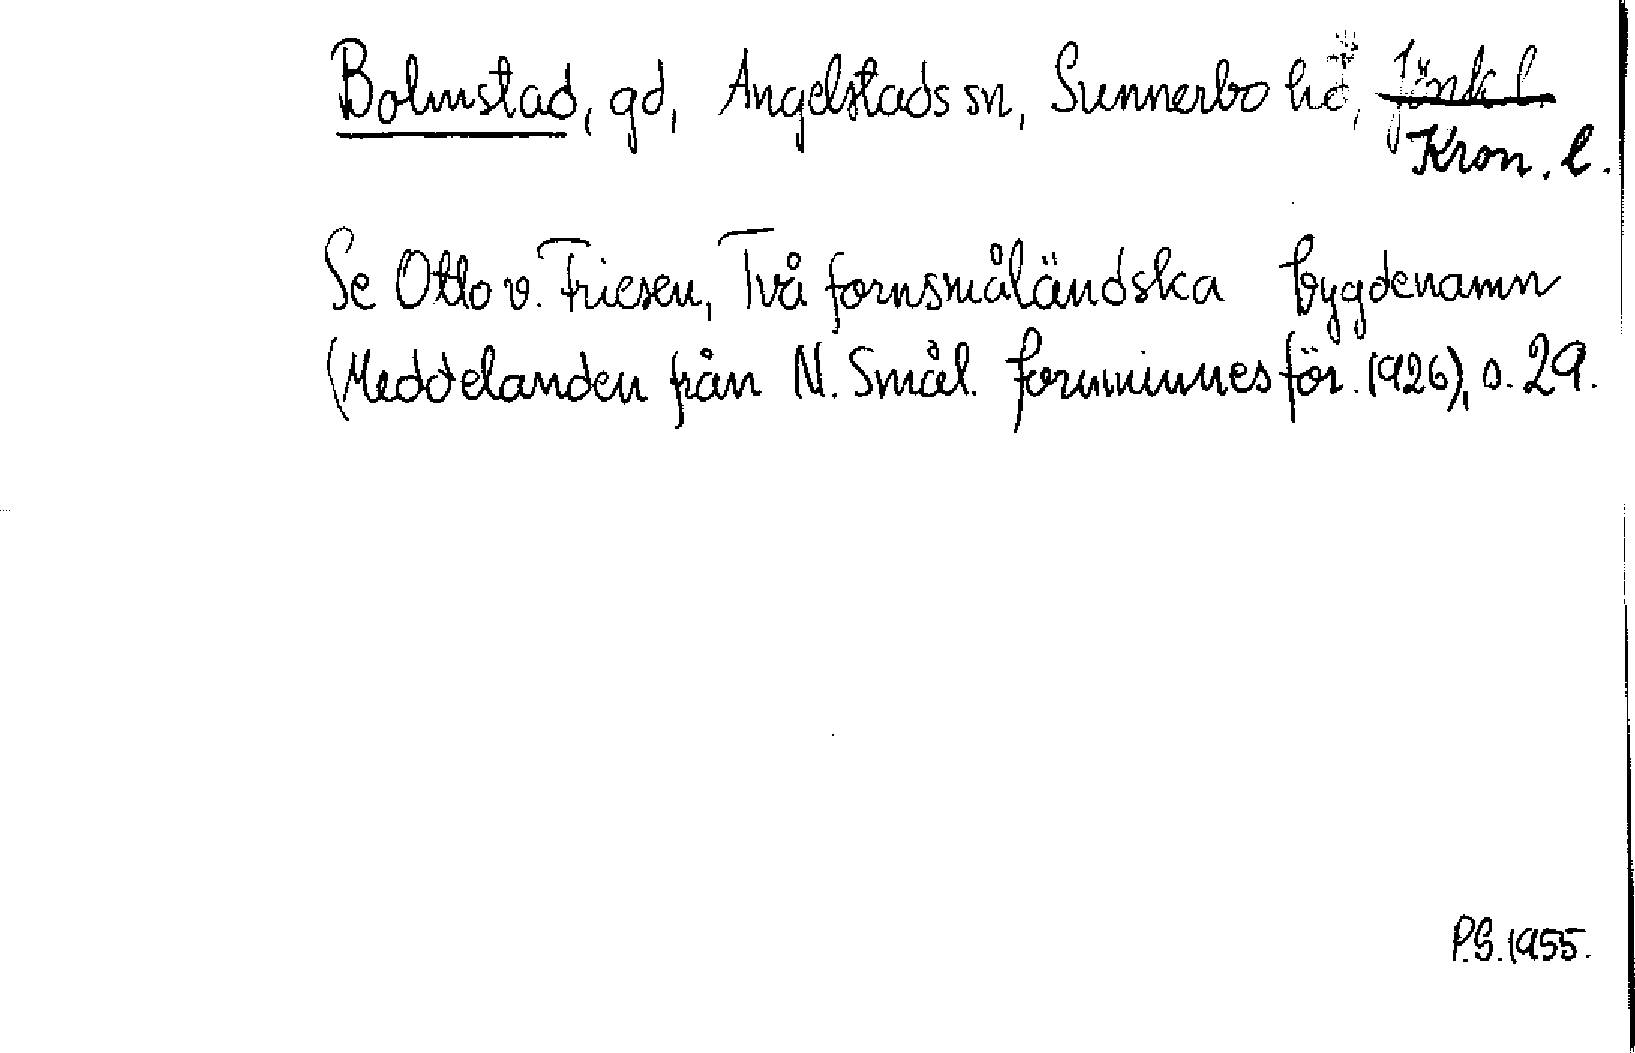 Bolmstad, gd, Angelstads sn, Sunnerbo hd, Jönk l.
Kron. l.
Se Otto v. Friesen, Två fornsmåländska bygdenamn
(Meddelanden från N. Smål. fornminnesför. 1926), s. 29.
P.G. 1955.